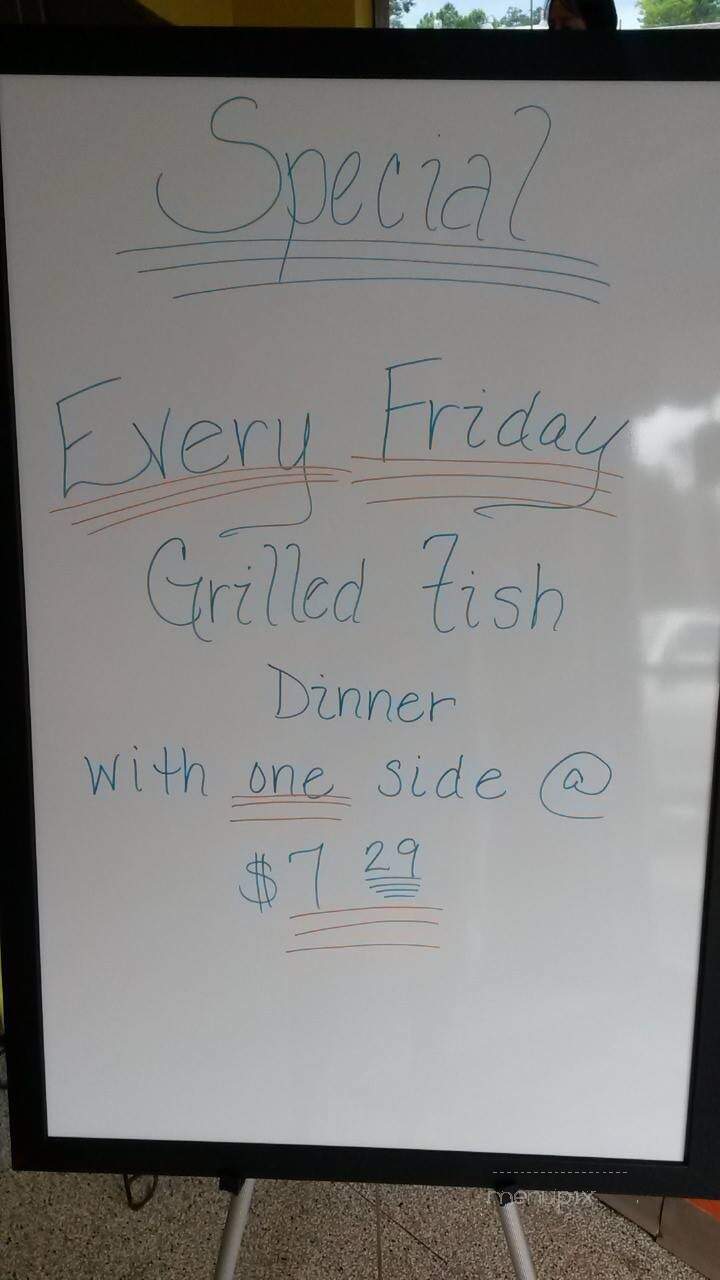 Special
Every Friday
Grilled Fish
Dinner
with one side @
$7 29
menupix